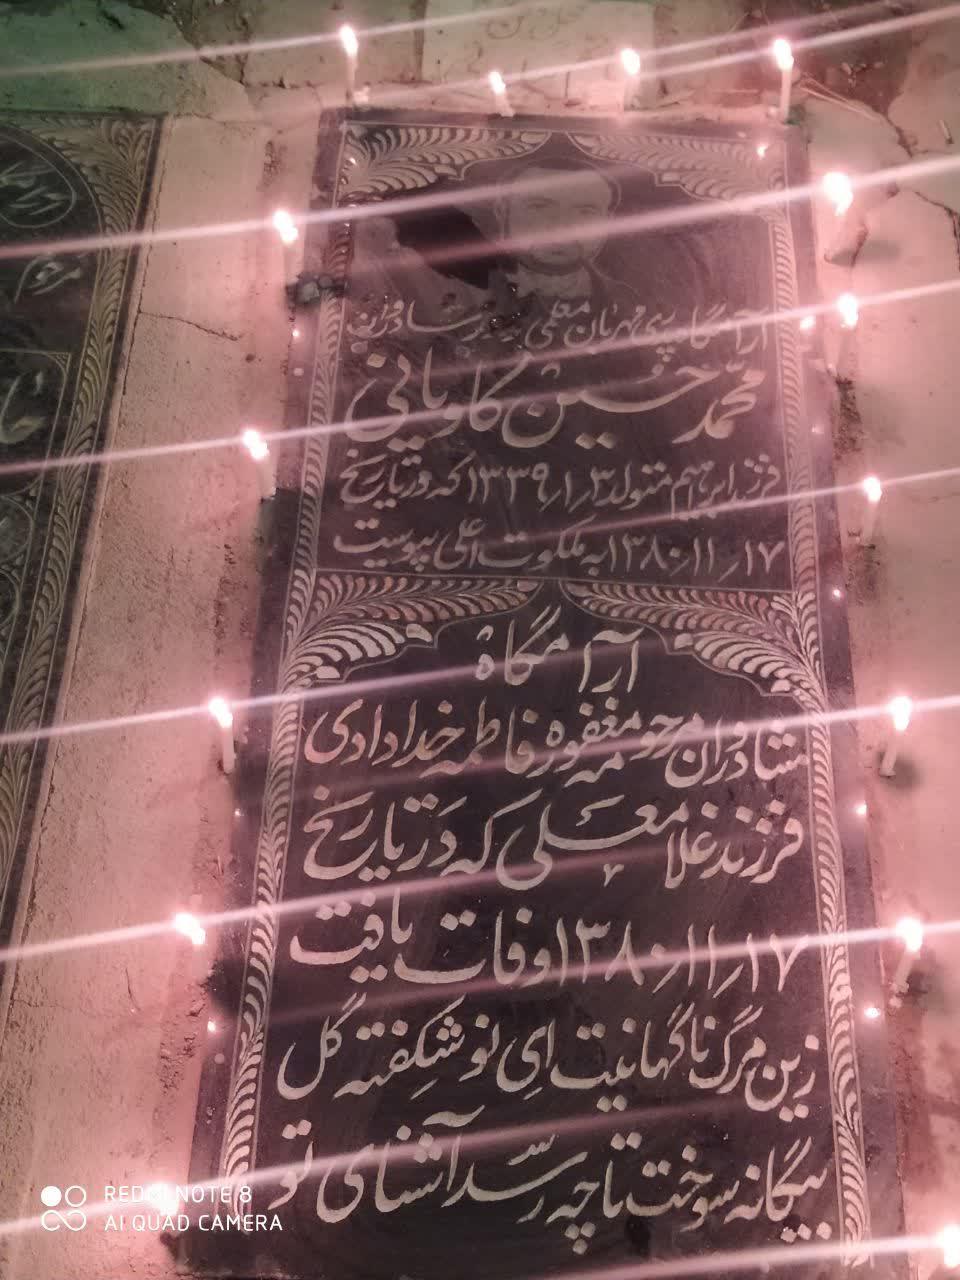 آرامگاه پدری مهربان معلمی دلیر شادروان
محمد حسین کاویانی
فرزند ابراهیم متولد ۱۳۳۹٫۱٫۳ که در تاریخ
۱۳۸۰٫۱۱٫۱۷ به ملکوت اعلی پیوست
آرامگاه
شادروان مرحومه مغفوره فاطمه خدادادی
فرزند غلامعلی که در تاریخ
۱۳۸۰٫۱۱٫۱۷ وفات یافت
زین مرگ ناگهانیت ای نو شکفته گل
بیگانه سوخت تا چه رسد آشنای تو
مرحوم
REDMI NOTE 8
AI QUAD CAMERA